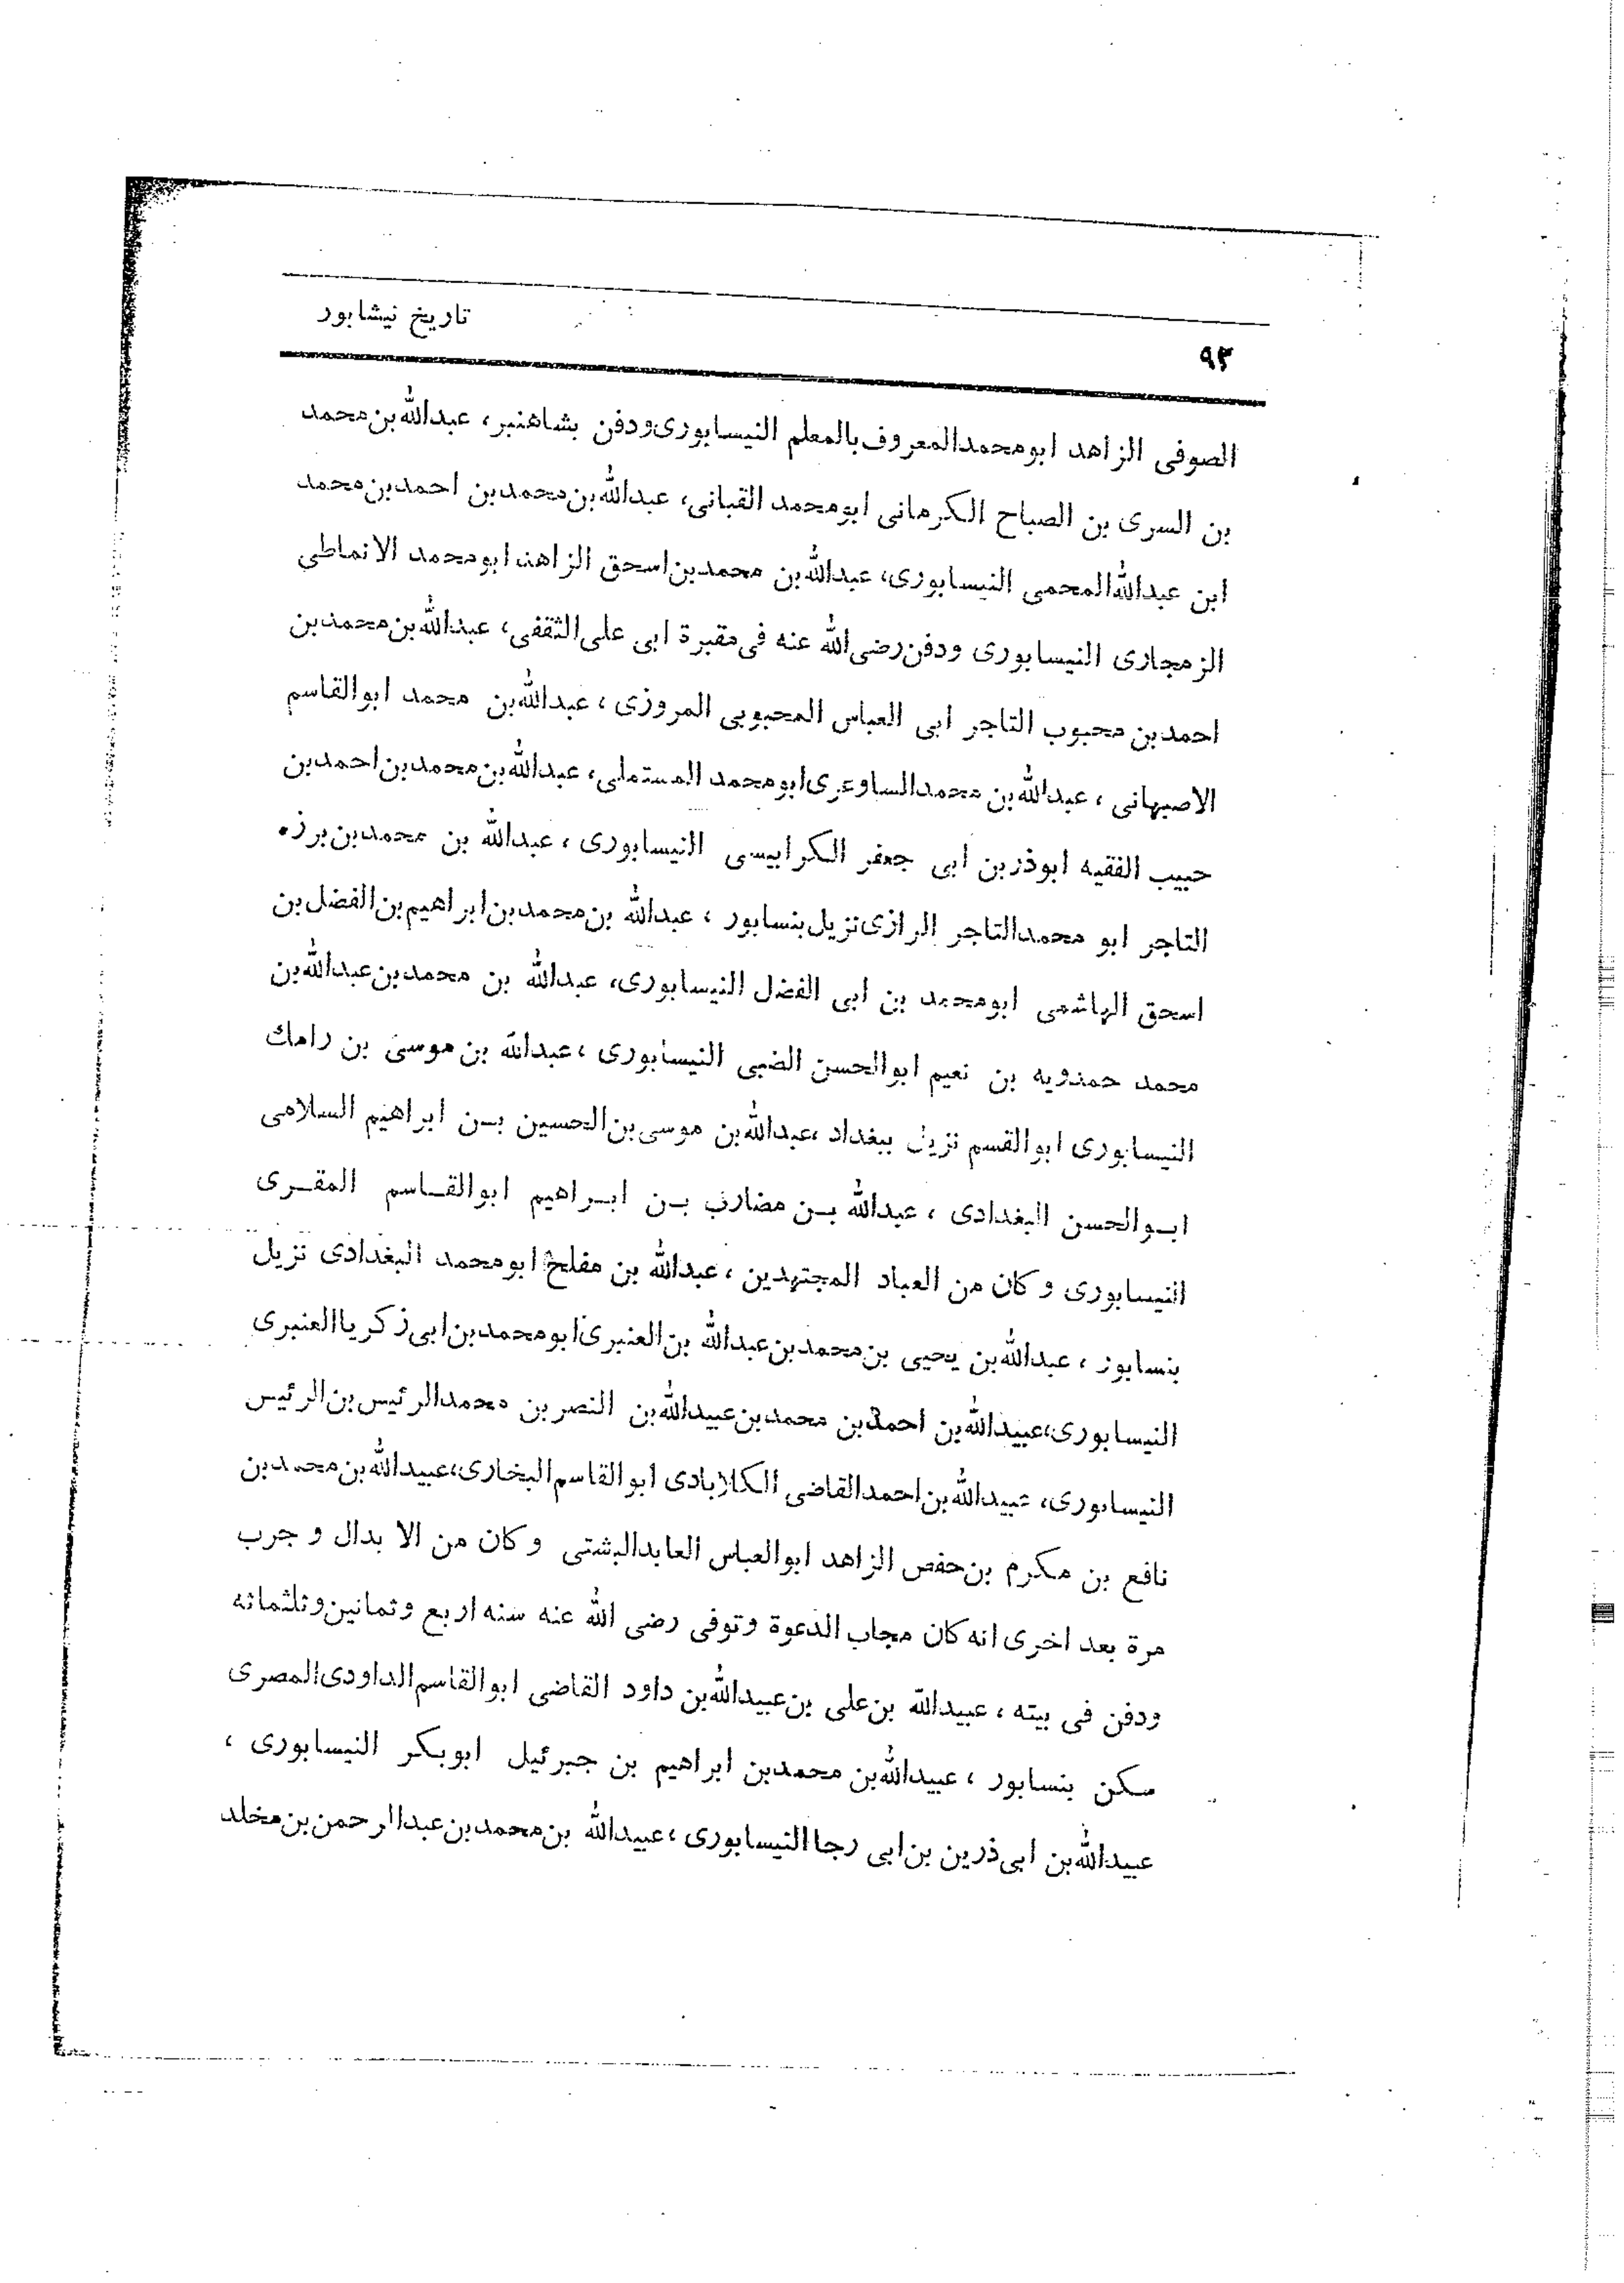 تاریخ نیشابور
۹۳
الصوفی الزاهد ابومحمدالمعروف بالمعلم النیسابوری ودفن بشاهنبر، عبدالله بن محمد
بن السری بن الصباح الکرمانی ابومحمد القبانی، عبدالله بن محمد بن احمد بن محمد
ابن عبدالله المحمی النیسابوری، عبدالله بن محمد بن اسحق الزاهد ابومحمد الانماطی
الزمجاری النیسابوری ودفن رضی الله عنه فی مقبرة ابی علی الثقفی، عبدالله بن محمد بن
احمد بن محبوب التاجر ابی العباس المحبوبی المروزی، عبدالله بن محمد ابوالقاسم
الاصبهانی، عبدالله بن محمد الساوعری ابومحمد المستملی، عبدالله بن محمد بن احمد بن
حبیب الفقیه ابوذر بن ابی جعفر الکرابیسی النیسابوری، عبدالله بن محمد بن برزه
التاجر ابو محمد التاجر الرازی نزیل بنسابور، عبدالله بن محمد بن ابراهیم بن الفضل بن
اسحق الهاشمی ابومحمد بن ابی الفضل النیسابوری، عبدالله بن محمد بن عبدالله بن
محمد حمدویه بن نعیم ابوالحسن الضبی النیسابوری، عبدالله بن موسی بن رامك
النیسابوری ابوالقسم نزیل ببغداد، عبدالله بن موسی بن الحسین بن ابراهیم السلامی
ابوالحسن البغدادی، عبدالله بن مضارب بن ابراهیم ابوالقاسم المقری
النیسابوری وکان من العباد المجتهدین، عبدالله بن مفلح ابومحمد البغدادی نزیل
بنسابور، عبدالله بن یحیی بن محمد بن عبدالله بن العنبری ابومحمد بن ابی زکریا العنبری
النیسابوری، عبیدالله بن احمد بن محمد بن عبیدالله بن النصر بن محمد الرئیس بن الرئیس
النیسابوری، عبیدالله بن احمد القاضی الکلابادی ابوالقاسم البخاری، عبیدالله بن محمد بن
نافع بن مکرم بن حفص الزاهد ابوالعباس العابد البشتی وکان من الابدال و جرب
مرة بعد اخری انه کان مجاب الدعوة وتوفی رضی الله عنه سنه اربع وثمانین وثلثمائه
ودفن فی بیته، عبیدالله بن علی بن عبیدالله بن داود القاضی ابوالقاسم الداودی المصری
سکن بنسابور، عبیدالله بن محمد بن ابراهیم بن جبرئیل ابوبکر النیسابوری،
عبیدالله بن ابی ذرین بن ابی رجا النیسابوری، عبیدالله بن محمد بن عبدالرحمن بن مخلد